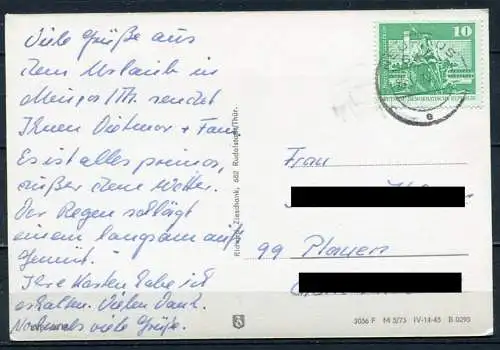 Viele Grüße aus
dem Urlaub in
sendet
Ihnen Dietmar + Fam.
Es ist alles prima,
außer dem Wetter.
Der Regen schlägt
einem langsam aufs
Gemüt.
Ihre Karten habe ich
erhalten. Vielen Dank.
Nochmals viele Grüße.
Zieschank, 682 Rudolstadt/Thür.
10
DEUTSCHE DEMOKRATISCHE REPUBLIK
Frau
99 Plauen
3056 F M 5/73 IV-14-45 B 0293